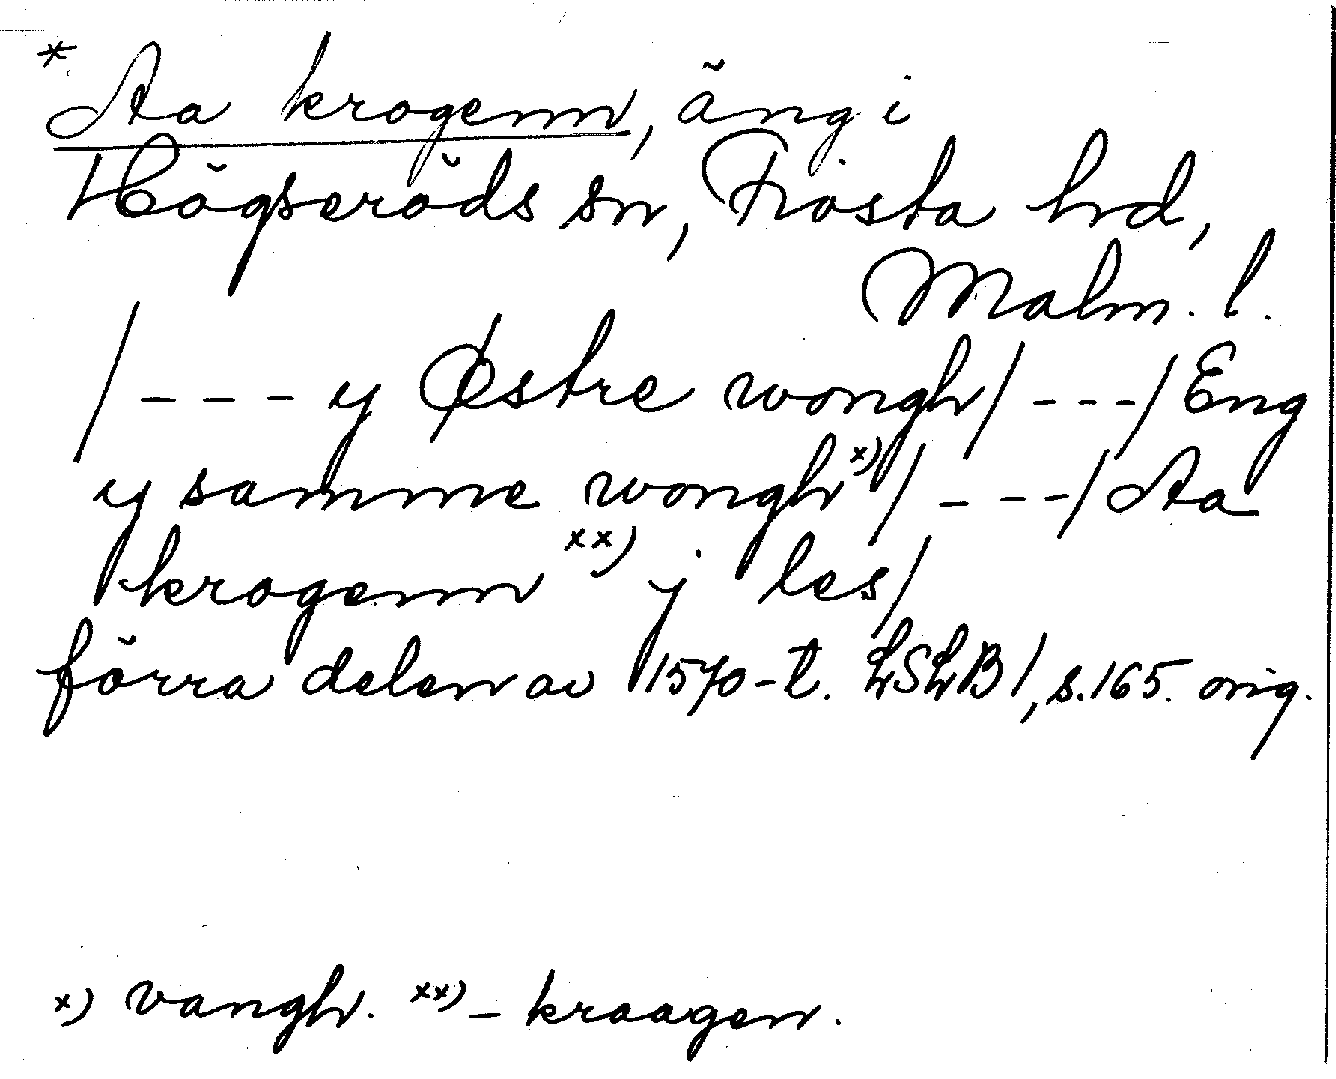 * Aa krogenn, äng i
Högseröds sn, Frosta hd,
Malm. l.
/--- y Østre wongh/ ---/ Eng
y samme wongh x)/ ---/ Aa
krogenn xx) j les/
förra delen av 1570-t. LSLB 1, s. 165. orig.
x) vangh. xx) - kraagen.